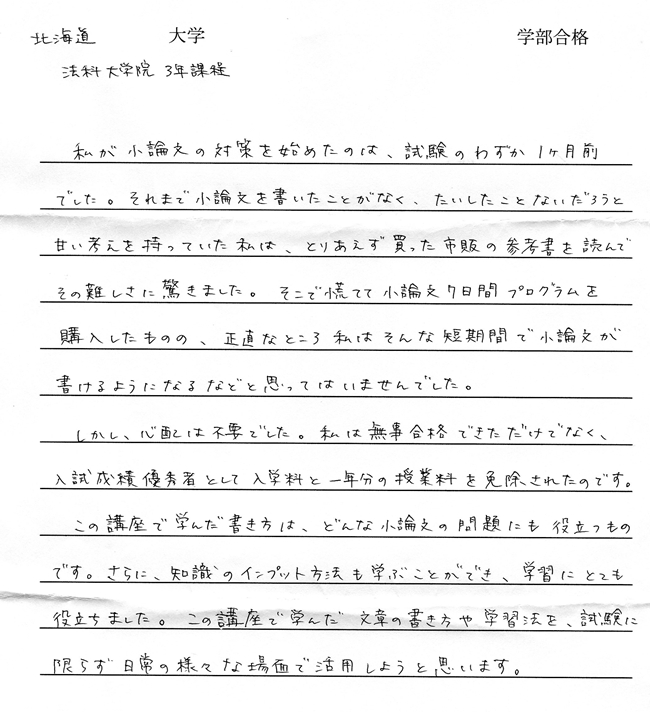 北海道 大学 学部合格
法科大学院 3年課程
私が小論文の対策を始めたのは、試験のわずか1ヶ月前
でした。それまで小論文を書いたことがなく、たいしたことないだろうと
甘い考えを持っていた私は、とりあえず買った市販の参考書を読んで
その難しさに驚きました。そこで慌てて小論文7日間プログラムを
購入したものの、正直なところ私はそんな短期間で小論文が
書けるようになるなどと思ってはいませんでした。
しかし、心配は不要でした。私は無事合格できただけでなく、
入試成績優秀者として入学料と一年分の授業料を免除されたのです。
この講座で学んだ書き方は、どんな小論文の問題にも役立つもの
です。さらに、知識のインプット方法も学ぶことができ、学習にとても
役立ちました。この講座で学んだ文章の書き方や学習法を、試験に
限らず日常の様々な場面で活用しようと思います。